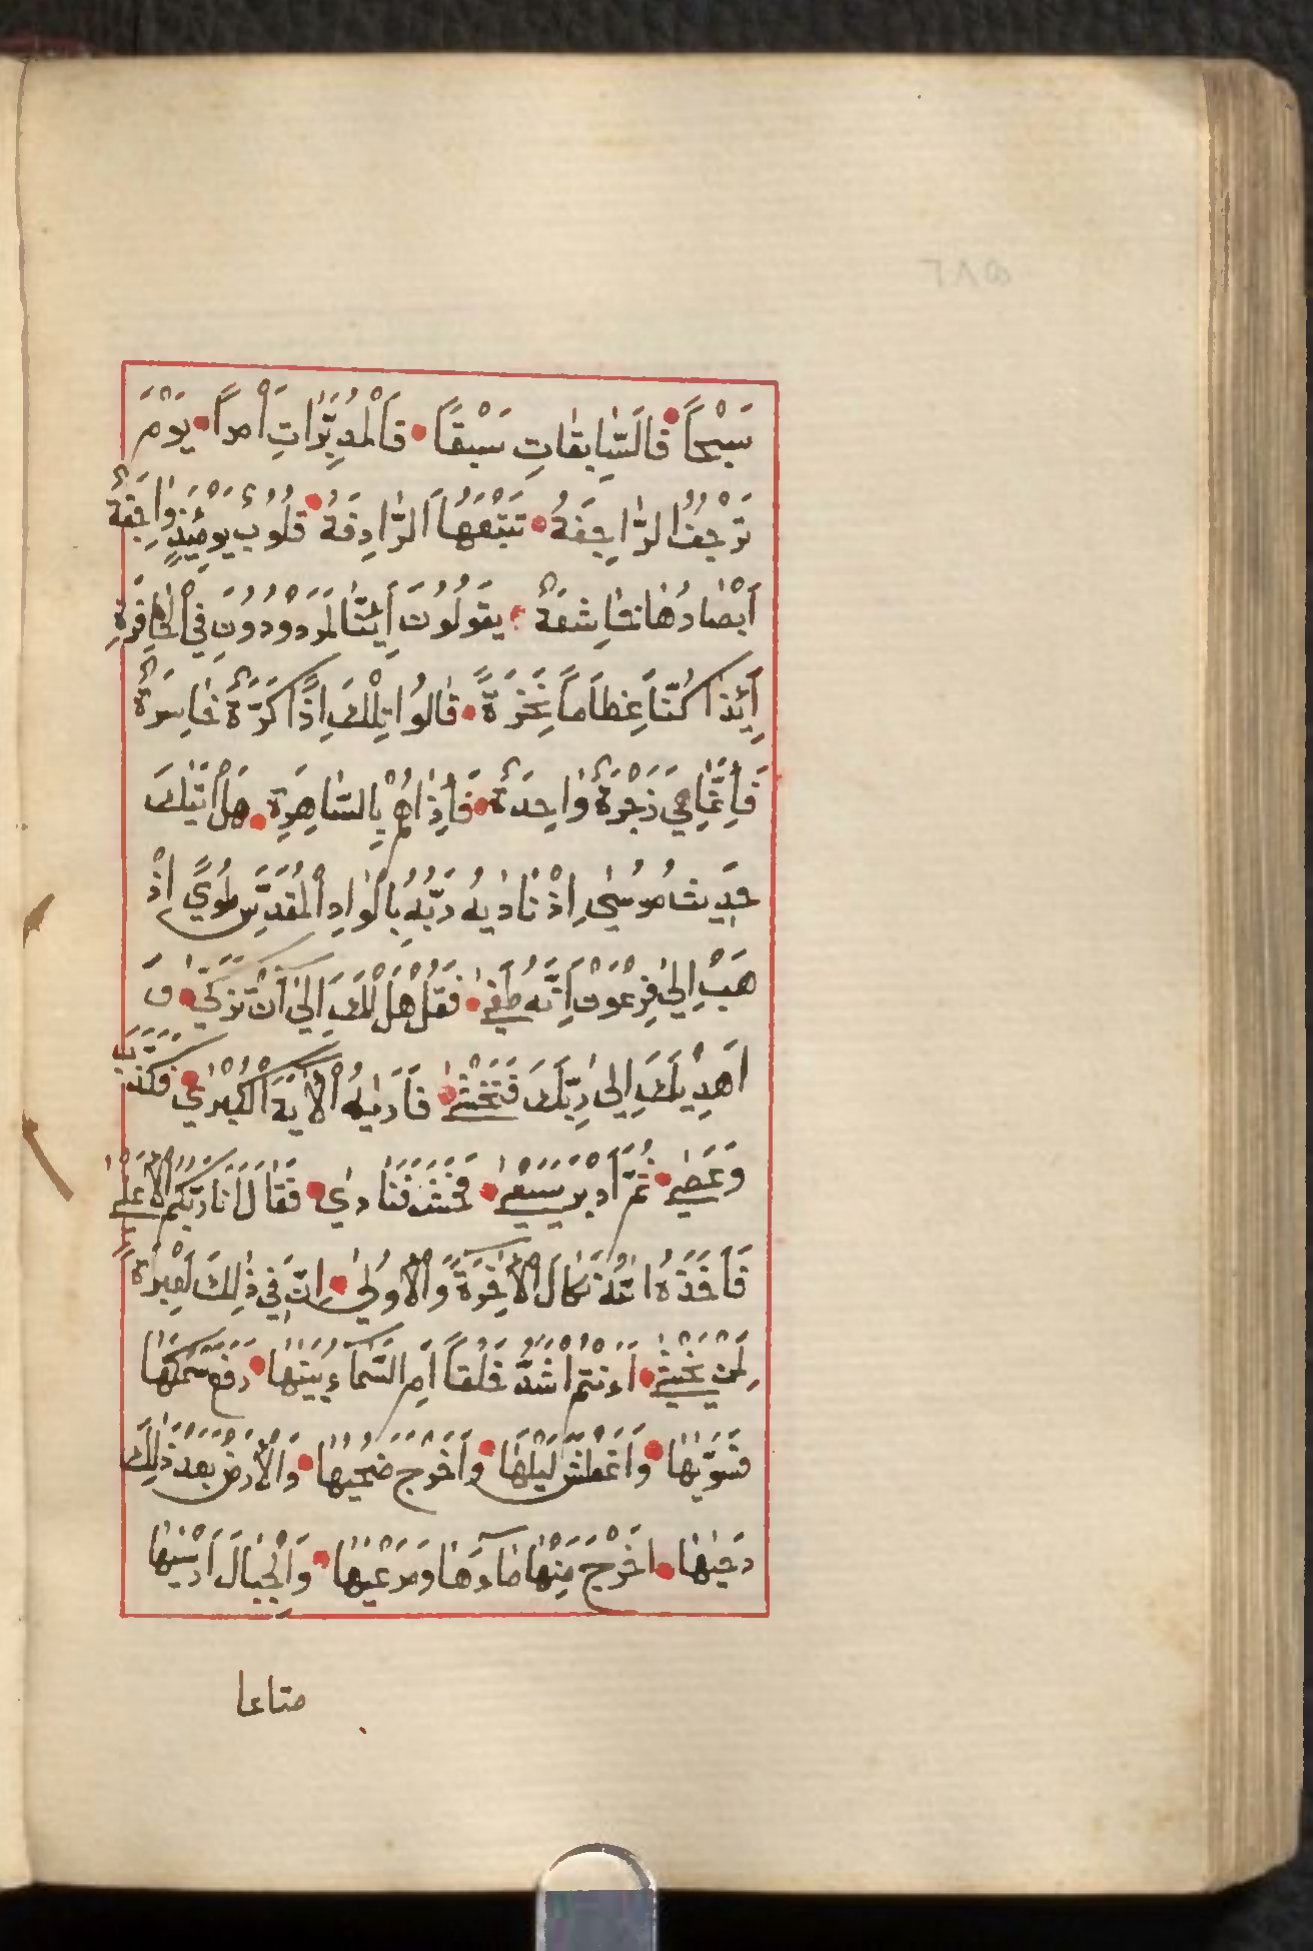 ٦٨٥
سَبْحاً فَالسَّابِقَاتِ سَبْقاً فَالْمُدَبِّرَاتِ أَمْراً يَوْمَ
تَرْجُفُ الرَّاجِفَةُ تَتْبَعُهَا الرَّادِفَةُ قُلُوبٌ يَوْمَئِذٍ وَاجِفَةٌ
أَبْصَارُهَا خَاشِعَةٌ يَقُولُونَ أَئِنَّا لَمَرْدُودُونَ فِي الْحَافِرَةِ
أَئِذَا كُنَّا عِظَاماً نَخِرَةً قَالُوا تِلْكَ إِذاً كَرَّةٌ خَاسِرَةٌ
فَإِنَّمَا هِيَ زَجْرَةٌ وَاحِدَةٌ فَإِذَا هُمْ بِالسَّاهِرَةِ هَلْ أَتَيٰكَ
حَدِيثُ مُوسٰى إِذْ نَادٰيهُ رَبُّهُ بِالْوَادِ الْمُقَدَّسِ طُوًى اِذْ
هَبْ إِلَى فِرْعَوْنَ إِنَّهُ طَغٰى فَقُلْ هَلْ لَكَ إِلَى أَنْ تَزَكّٰى وَ
اَهْدِيَكَ إِلَى رَبِّكَ فَتَخْشٰى فَأَرٰيهُ الْأٰيَةَ الْكُبْرٰى فَكَذَّبَ
وَعَصٰى ثُمَّ أَدْبَرَ يَسْعٰى فَحَشَرَ فَنَادٰى فَقَالَ أَنَا رَبُّكُمُ الْأَعْلٰى
فَأَخَذَهُ اللّٰهُ نَكَالَ الْأٰخِرَةِ وَالْأُولٰى إِنَّ فِي ذٰلِكَ لَعِبْرَةً
لِمَنْ يَخْشٰى أَءَنْتُمْ أَشَدُّ خَلْقاً أَمِ السَّمَاءُ بَنَيٰهَا رَفَعَ سَمْكَهَا
فَسَوّٰيهَا وَأَغْطَشَ لَيْلَهَا وَأَخْرَجَ ضُحٰيهَا وَالْأَرْضَ بَعْدَ ذٰلِكَ
دَحٰيهَا اَخْرَجَ مِنْهَا مَاءَهَا وَمَرْعٰيهَا وَالْجِبَالَ أَرْسٰيهَا
متاعا